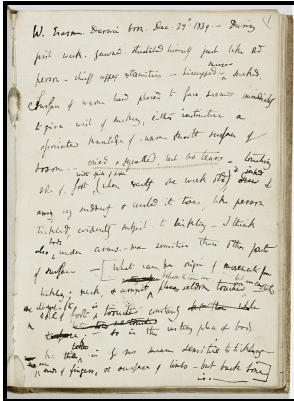 W. Erasmus. Darwin born. Dec. 27th 1839. — During
first week. yawned, stretched himself just like old
person — chiefly upper extremities — hiccupped — sneezes
sucked. Surface of warm hand placed to face seemed immediately
to give wish of sucking, either instinctive or
associated knowledge of warm smooth surface of
bosom. — cried & squalled, but no tears — touching
sole of foot with spill of paper, (when exactly one week old) it jerked
away very suddenly & curled its toes, like person
tickled, evidently subject to tickling — I think
also body under arms. — more sensitive than other parts
of surface — What can be origin of movement from
tickling; neck, & armpit between the toes are places seldom touched
sole of foot is touched constantly
is the resting place of body
is of no means sensitive to tickling —
ends of fingers, or surface of limbs — but back bone
is. —